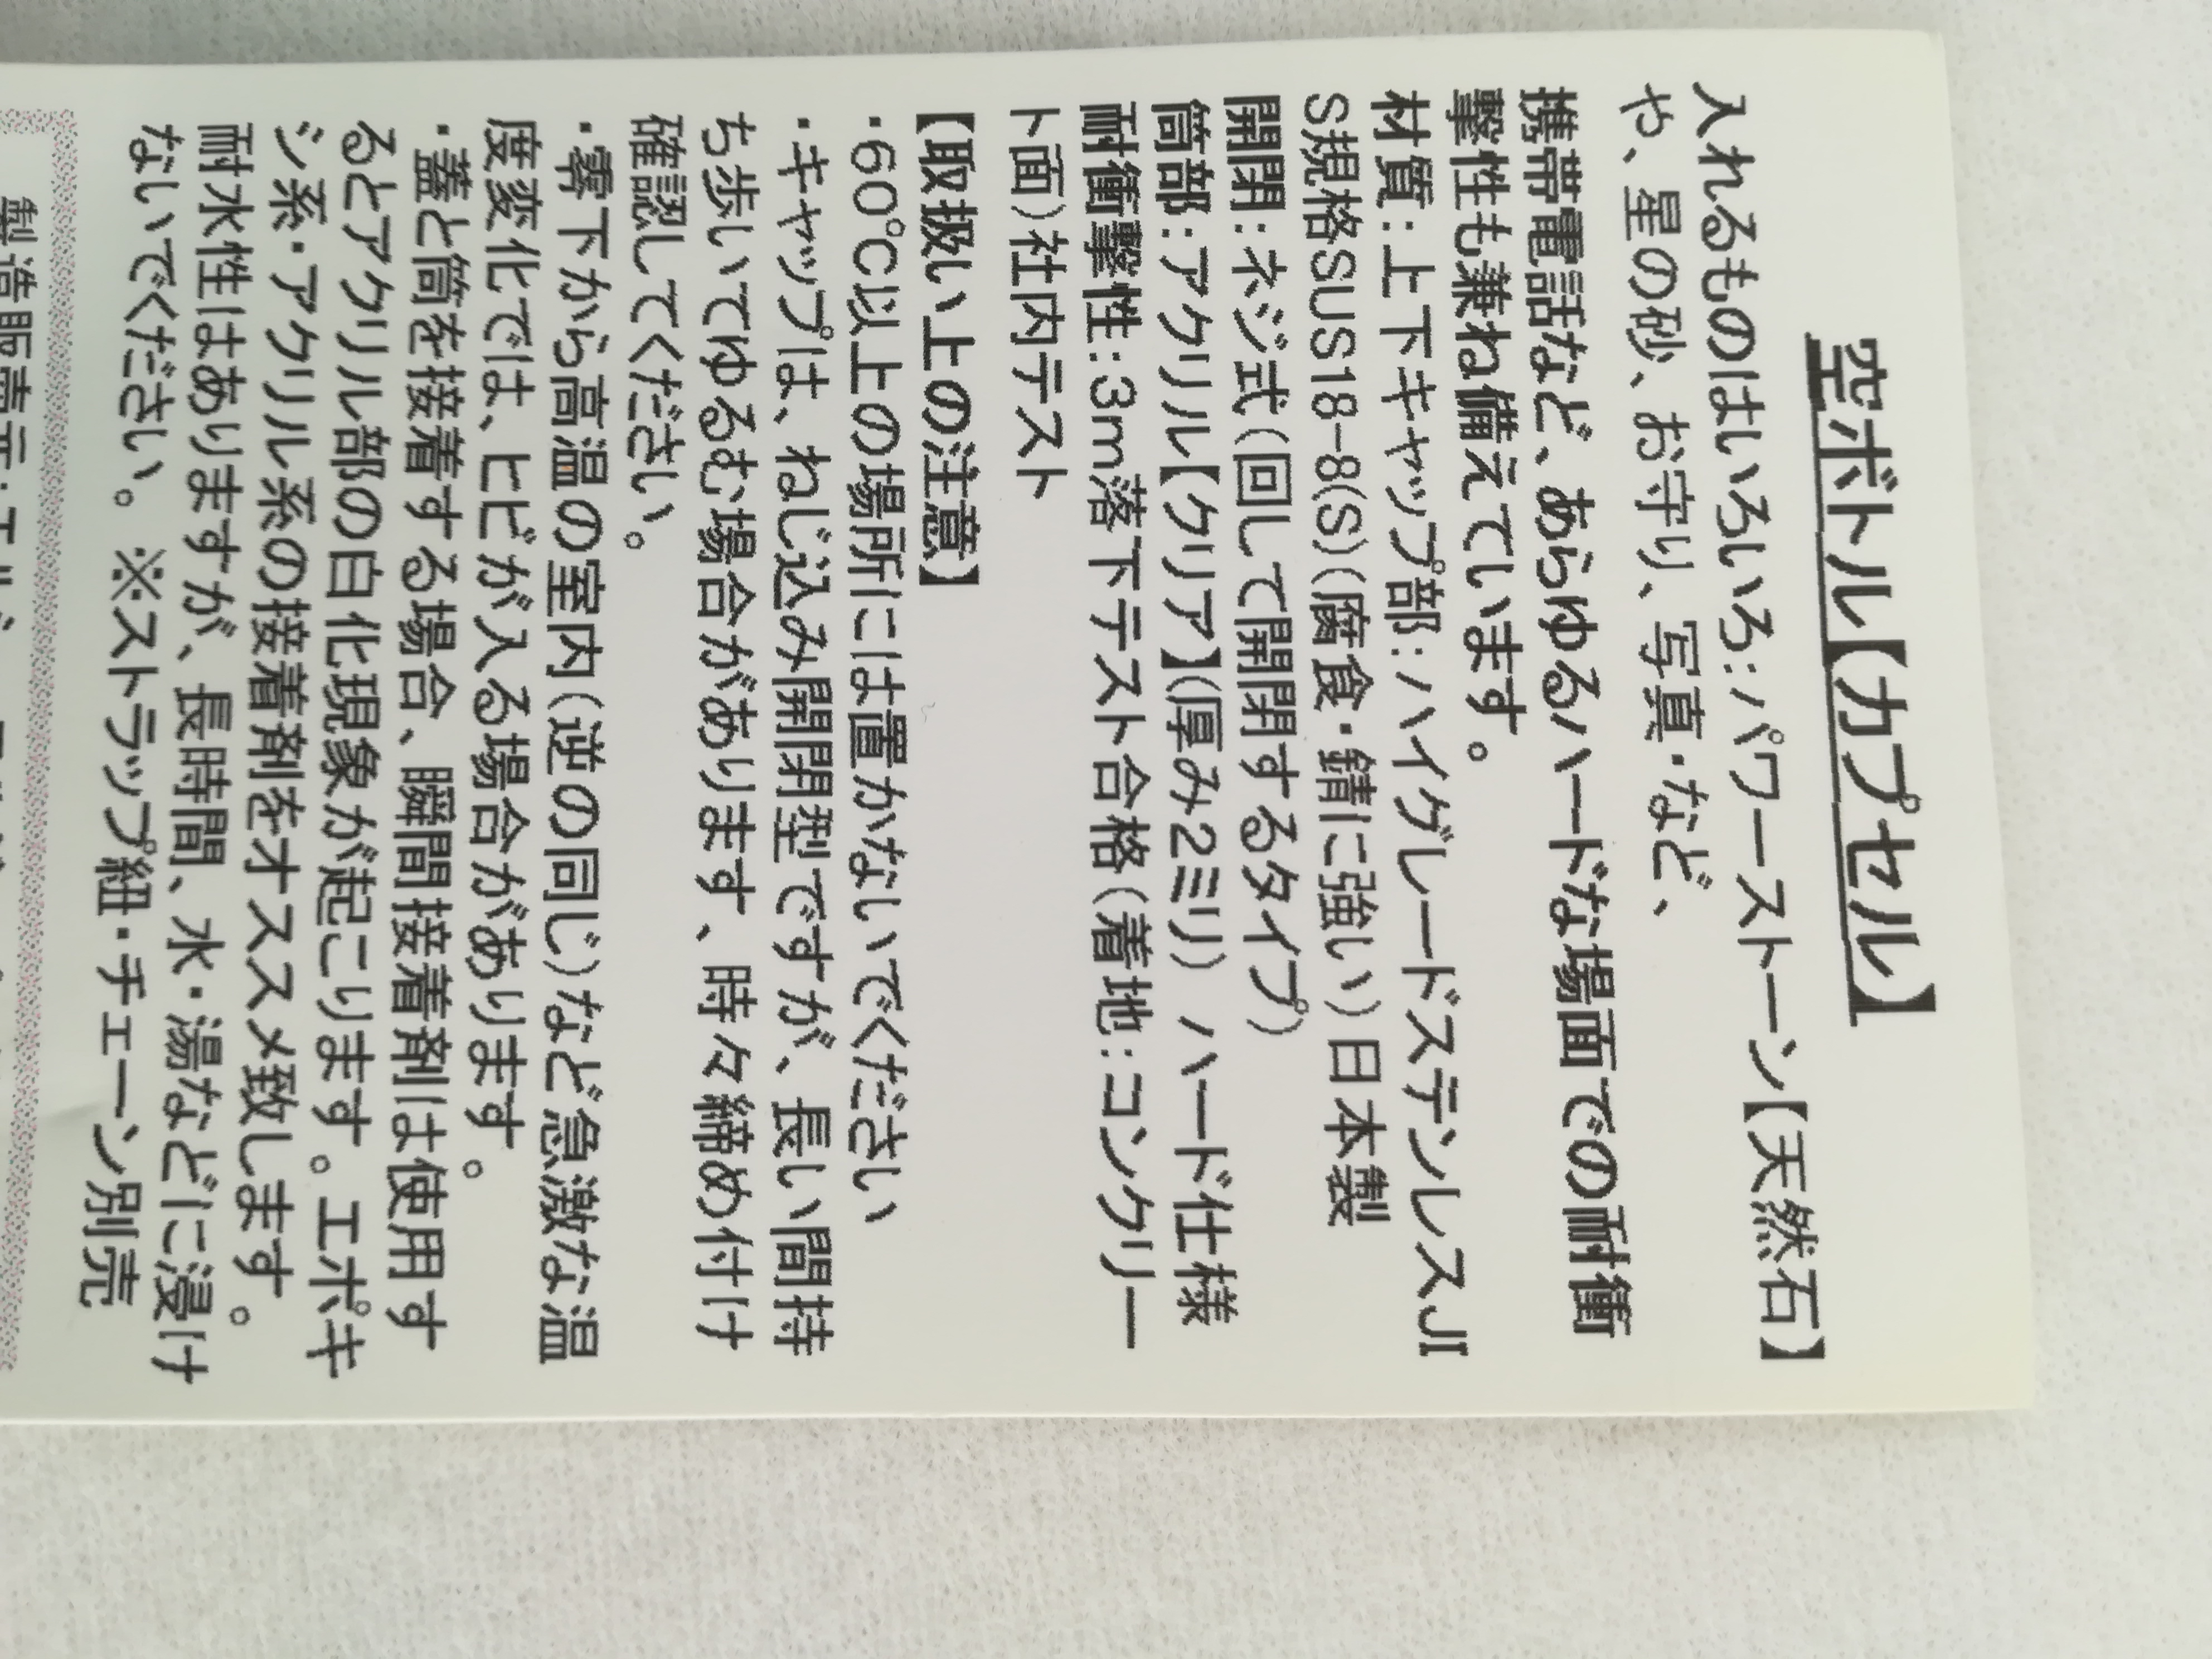 空ボトル【カプセル】
入れるものはいろいろ：パワーストーン【天然石】
や、星の砂、お守り、写真・など、
携帯電話など、あらゆるハードな場面での耐衝
撃性も兼ね備えています。
材質：上下キャップ部：ハイグレードステンレスJI
S規格SUS18-8(S)(腐食・錆に強い)日本製
開閉：ネジ式(回して開閉するタイプ)
筒部：アクリル【クリア】(厚み2ミリ) ハード仕様
耐衝撃性：3m落下テスト合格(着地：コンクリー
ト面)社内テスト
【取扱い上の注意】
・60℃以上の場所には置かないでください
・キャップは、ねじ込み開閉型ですが、長い間持
ち歩いてゆるむ場合があります、時々締め付け
確認してください。
・零下から高温の室内(逆の同じ)など急激な温
度変化では、ヒビが入る場合があります。
・蓋と筒を接着する場合、瞬間接着剤は使用す
るとアクリル部の白化現象が起こります。エポキ
シ系・アクリル系の接着剤をオススメ致します。
耐水性はありますが、長時間、水・湯などに浸け
ないでください。 ※ストラップ紐・チェーン別売
製造販売元：